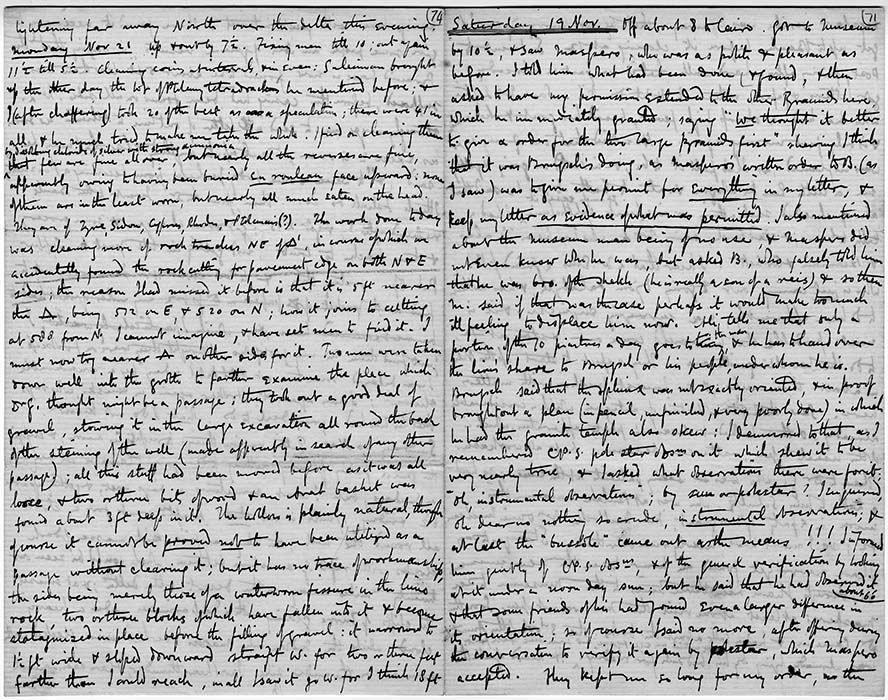 lightening far away North over the delta this evening. 74
Monday Nov 21 up & out by 7½. Fixing men till 10; out again
11½ till 5½. Cleaning coins & in even: Suleiman brought
up the other day the lot of Ptolemy tetradrachms he mentioned before; &
I (after chaffering) took 20 of the best as a speculation; there were 41 in
all, & he much tried to make me take the whole. I find on cleaning them
by dissolving chloride of silver with strong ammonia
that few are fine all over, but nearly all the reverses are fine,
apparently owing to having been buried in rouleau face upward: none
of them are in the least worn, but nearly all much eaten on the head.
They are of Tyre, Sidon, Cyprus, & Ptolemais (?). The work done today
was cleaning more of rock trenches NE of Δ, in course of which we
accidentally found the rock cutting for pavement edge on both N & E
sides; the reason I had missed it before is that it is 5 ft nearer
the Δ, being 572 on E & 520 on N; how it joins to cutting
at 588 from N I cannot imagine, & have set men to find it. I
must now try nearer Δ on other sides for it. Two men were taken
down well into the grotto to further examine the place which
Dr G. thought might be a passage; they took out a good deal of
gravel, stowing it in the large excavation all round the back
of the steining of the well (made apparently in search of any other
passage); all this stuff had been moved before as it was all
loose, & two or three bits of wood & an Arab basket was
found about 3 ft deep in it. The hollow is plainly natural, though
of course it cannot be proved not to have been utilized as a
passage without clearing it; but it has no trace of workmanship,
the sides being merely those of a waterworn fissure in the lime
rock, two or three blocks of which have fallen into it & become
stalagmized in place before the filling of gravel: it narrowed to
1½ ft wide & sloped downward straight W. for two or three feet
farther than I could reach, in all I saw it go W. for I think 18 ft
Saturday 19 Nov. Off about 8 to Cairo. got to Museum 71
by 10½, & saw Maspero; who was as polite & pleasant as
before. I told him what had been done (& found, & then
asked to have my permission extended to the other Pyramids here,
which he immediately granted; saying "we thought it better
to give a order for the two large Pyramids first" shewing I think
that it was Brugsch's doing, as Maspero's written order to B. (as
I saw) was to give me permit for everything in my letter, &
keep my letter as evidence of what was permitted. I also mentioned
about the Museum man being of no use, & Maspero did
not even know who he was, but asked B., who falsely told him
that he was bro. of the sheikh (he is really a son of a reis) & so then
M. said if that was the case perhaps it would make too much
ill feeling to displace him now. Aly tells me that only a
portion of the 10 piastres a day goes to the man & he has to hand over
the lions share to Brugsch or his people, under whom he is.
Brugsch said that the sphinx was not exactly oriented, & in proof
brought out a plan (in pencil, unfinished, & very poorly done) in which
he had the granite temple also skew: I demurred to that, as I
remembered C.P.S. pole star obsns on it which shew it to be
very nearly true, & I asked what observations there were for it:
"oh, instrumental observations"; by sun or polestar? I inquired
oh dear no nothing so crude, instrumental observations; &
at last the "bussole" came out as the means !!! I informed
him gently of C.P.S. obsns, & of the general verification by looking
at it under a noon day sun; but he said that he had observed it
about 66
& that some friends of his had found even a larger difference in
its orientation; so of course I said no more, after offering during
the conversation to verify it again by polestar, which Maspero
accepted. They kept me so long for my order, no the